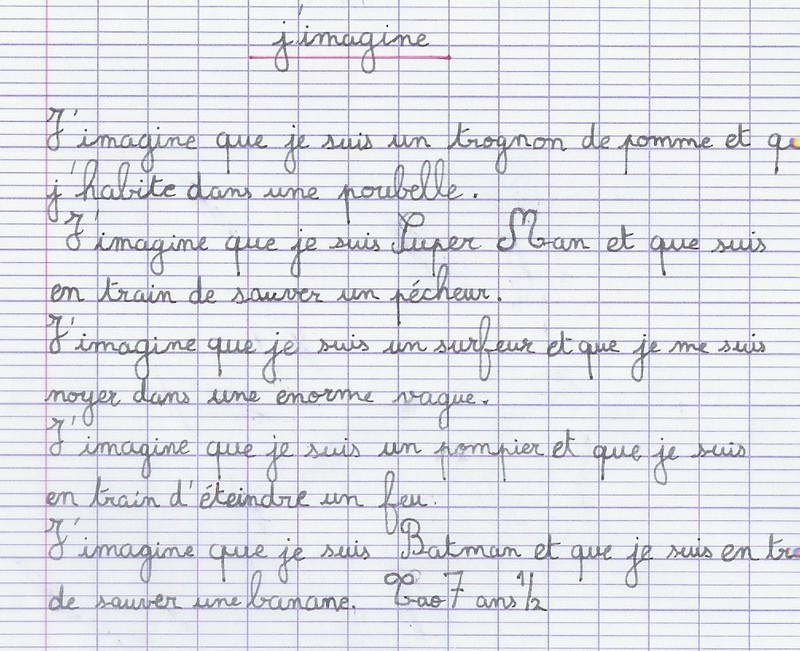 j'imagine
J'imagine que je suis un trognon de pomme et q
j'habite dans une poubelle.
J'imagine que je suis Super Man et que suis
en train de sauver un pécheur.
J'imagine que je suis un surfeur et que je me suis
noyer dans une énorme vague.
J'imagine que je suis un pompier et que je suis
en train d'éteindre un feu.
J'imagine que je suis Batman et que je suis en tr
de sauver une banane. Tao 7 ans 1/2